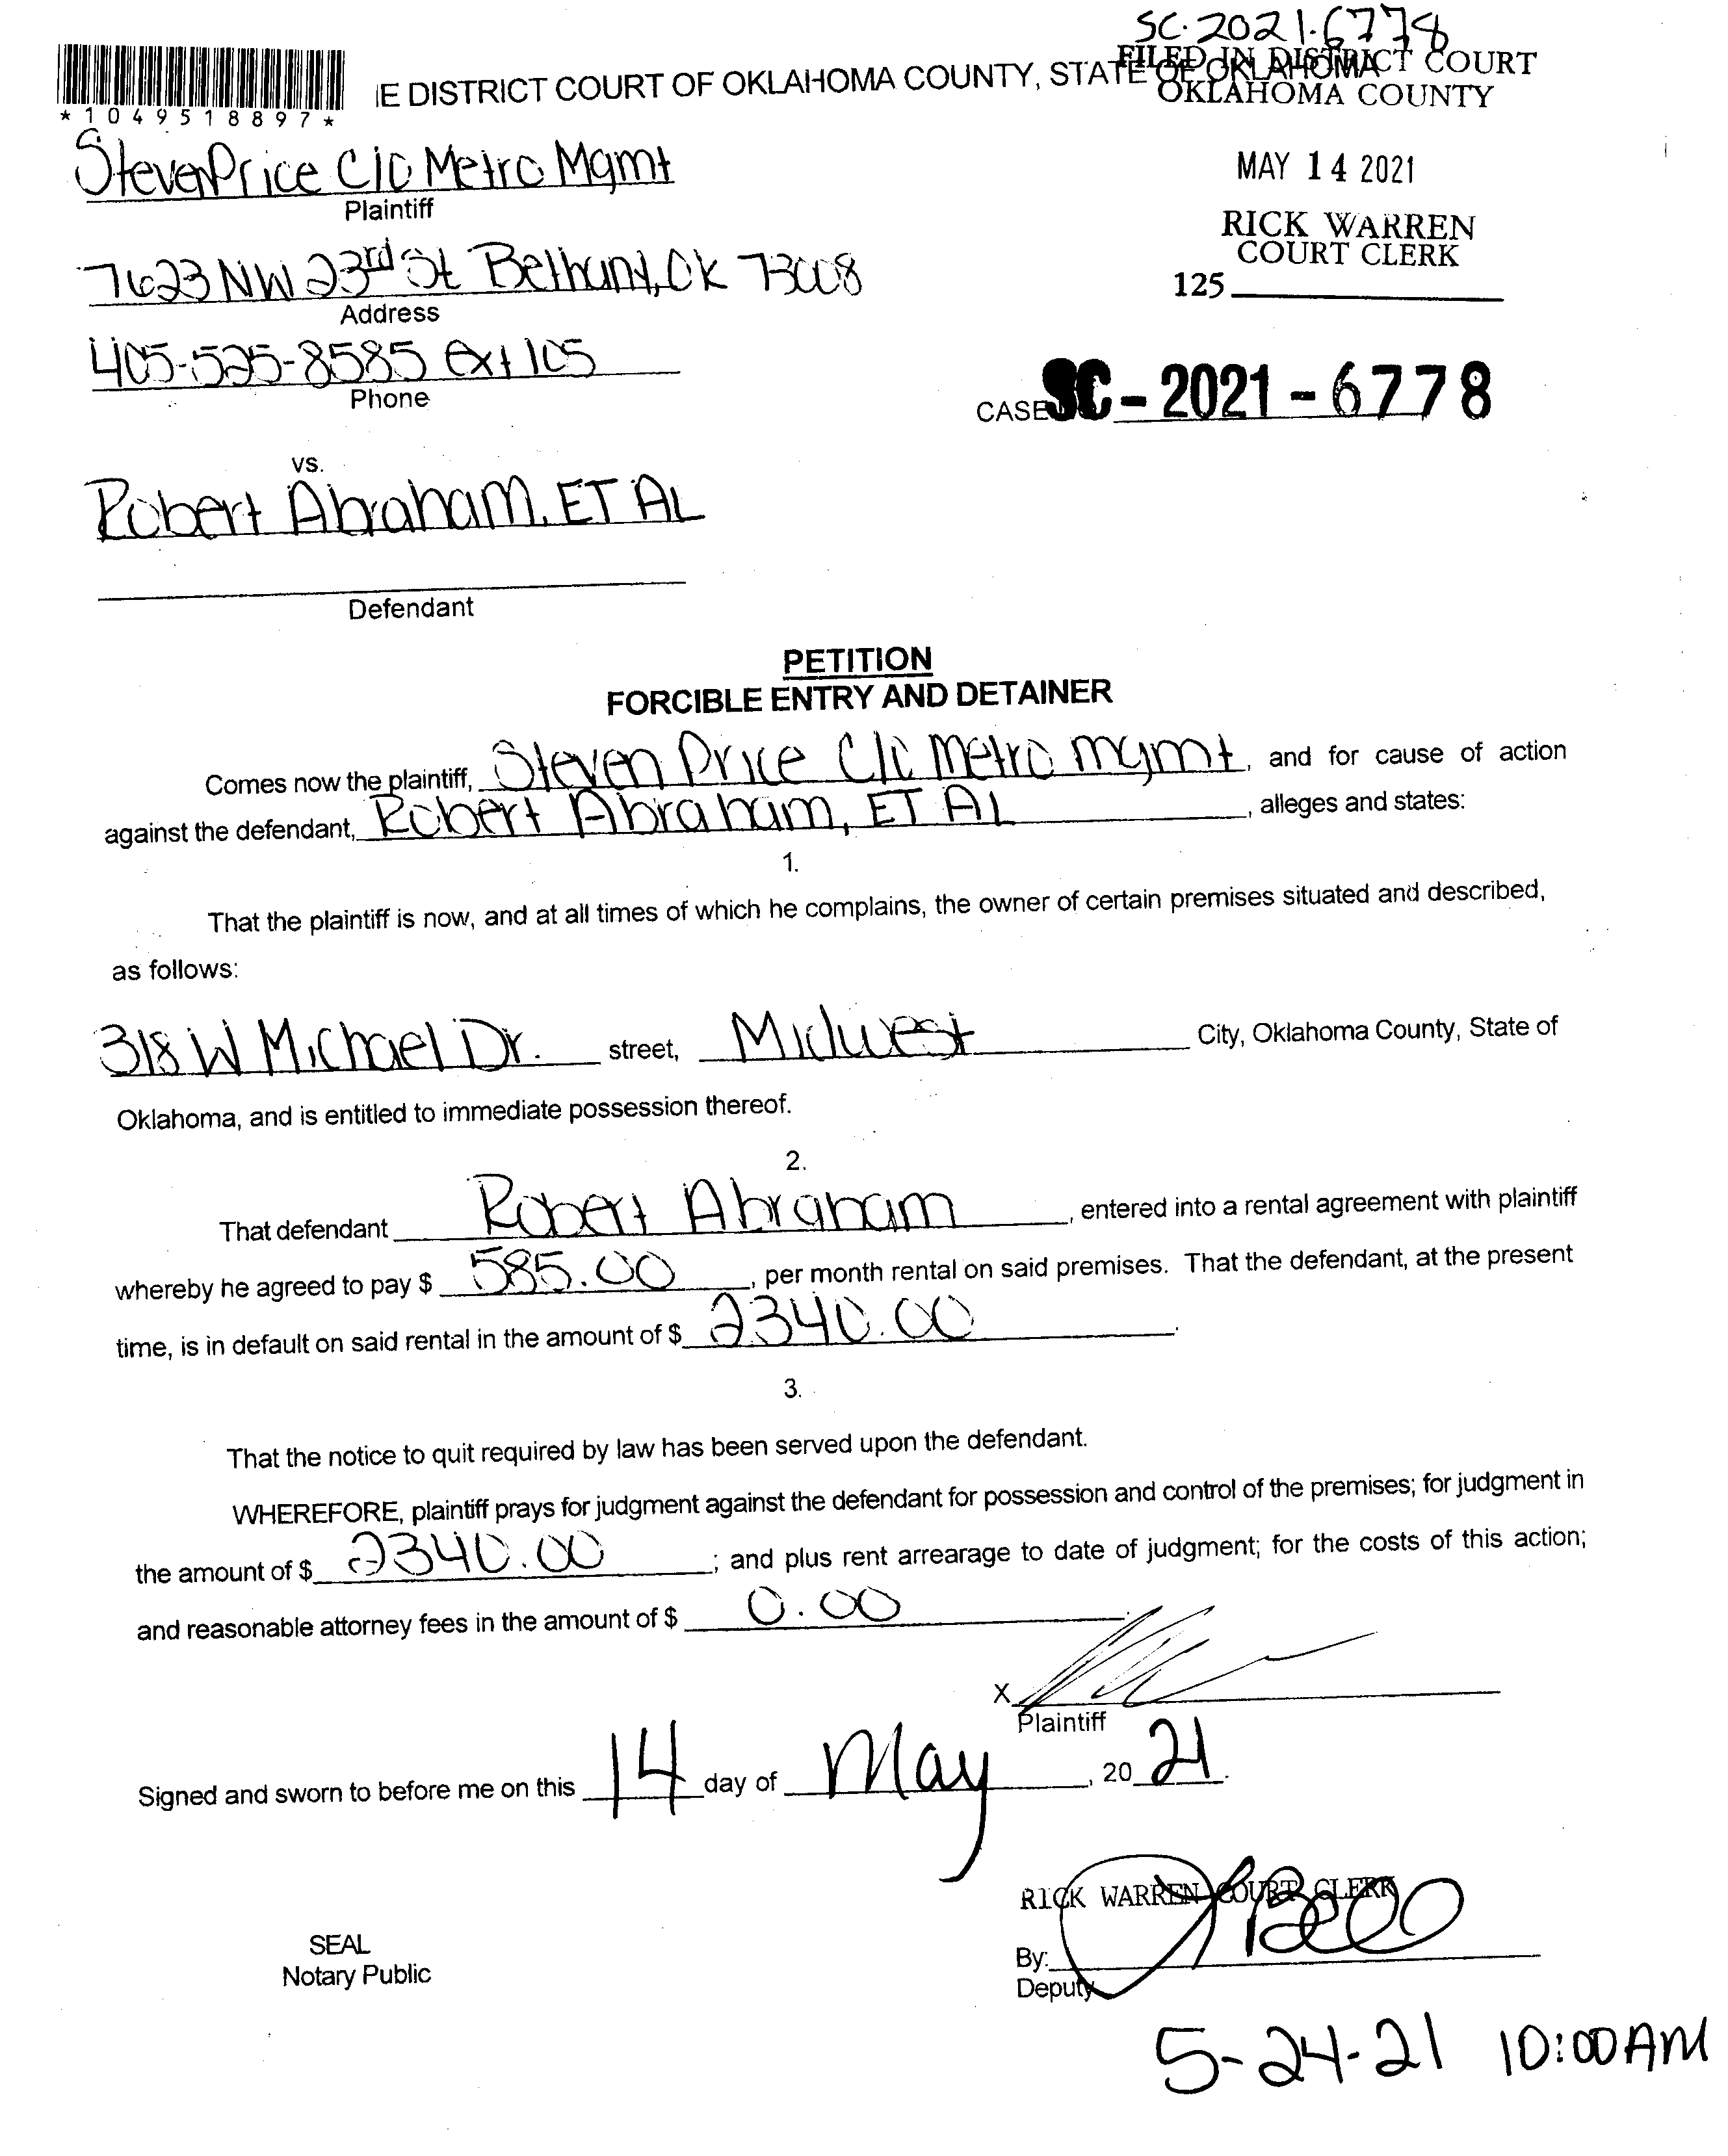 SC-2021-6778
FILED IN DISTRICT COURT
OKLAHOMA COUNTY
*1049518897*
IE DISTRICT COURT OF OKLAHOMA COUNTY, STATE OF OKLAHOMA
Steven Price C/O Metro Mgmt
Plaintiff
MAY 14 2021
RICK WARREN
COURT CLERK
125
7623 NW 23rd St Bethany, OK 73008
Address
405-525-8585 ext 105
Phone
CASE SC-2021-6778
vs.
Robert Abraham, ET AL
Defendant
PETITION
FORCIBLE ENTRY AND DETAINER
Comes now the plaintiff, Steven Price C/O Metro mgmt, and for cause of action
against the defendant, Robert Abraham, ET AL, alleges and states:
1.
That the plaintiff is now, and at all times of which he complains, the owner of certain premises situated and described,
as follows:
318 W Michael Dr. street, Midwest City, Oklahoma County, State of
Oklahoma, and is entitled to immediate possession thereof.
2.
That defendant Robert Abraham, entered into a rental agreement with plaintiff
whereby he agreed to pay $ 585.00, per month rental on said premises. That the defendant, at the present
time, is in default on said rental in the amount of $ 2340.00.
3.
That the notice to quit required by law has been served upon the defendant.
WHEREFORE, plaintiff prays for judgment against the defendant for possession and control of the premises; for judgment in
the amount of $ 2340.00; and plus rent arrearage to date of judgment; for the costs of this action;
and reasonable attorney fees in the amount of $ 0.00.
X
Plaintiff
Signed and sworn to before me on this 14 day of May, 2021.
RICK WARREN COURT CLERK
SEAL
Notary Public
By:
Deputy
5-24-21 10:00 AM